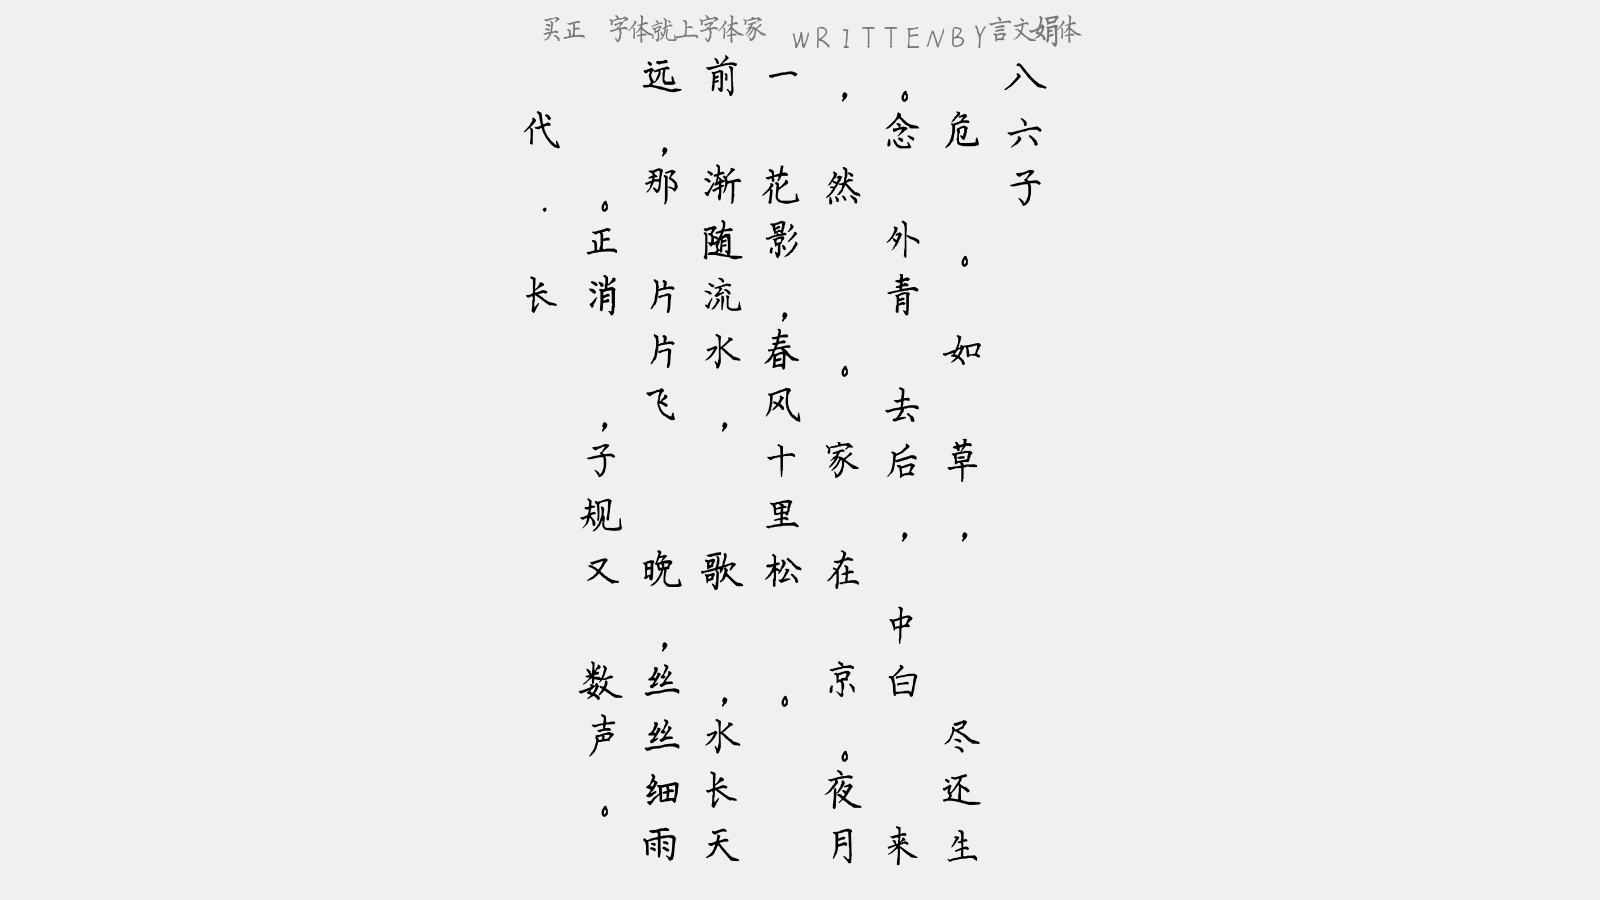 买正 字体就上字体家 WRITTENBY言文娟体
八六子
危 。 如 草， 尽还生
。念 外青 去后， 中白 来
，然 。 家 在 京。夜月
一 花影，春风十里松 。
前 渐随流水， 歌 ，水长天
远，那 片片飞 晚，丝丝细雨
。正消 ，子规又 数声。
代·长